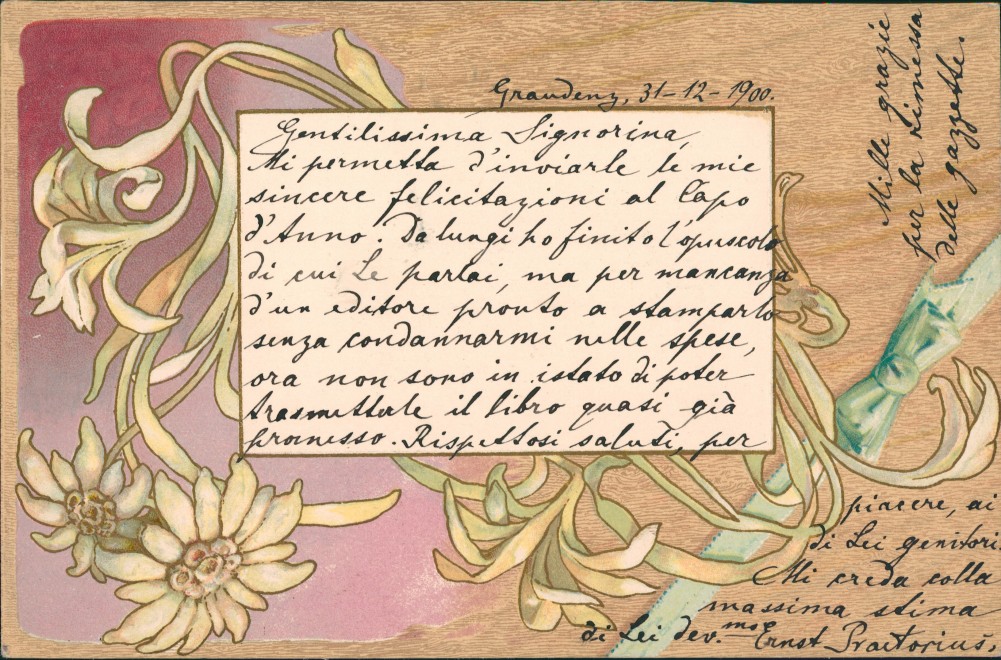 Graudenz, 31-12-1900.
Gentilissima Signorina,
Mi permetta d'inviarle le mie
sincere felicitazioni al Capo
d'Anno. Da lungi ho finito l'opuscolo
di cui Le parlai, ma per mancanza
d'un editore pronto a stamparlo
senza condannarmi nelle spese,
ora non sono in istato di poter
trasmetterle il libro quasi già
promesso. Rispettosi saluti, per
piacere, ai
di Lei genitori
Mi creda colla
massima stima
di Lei dev.mo Ernst Praetorius.
Mille grazie
per la rimessa
delle gazzette.